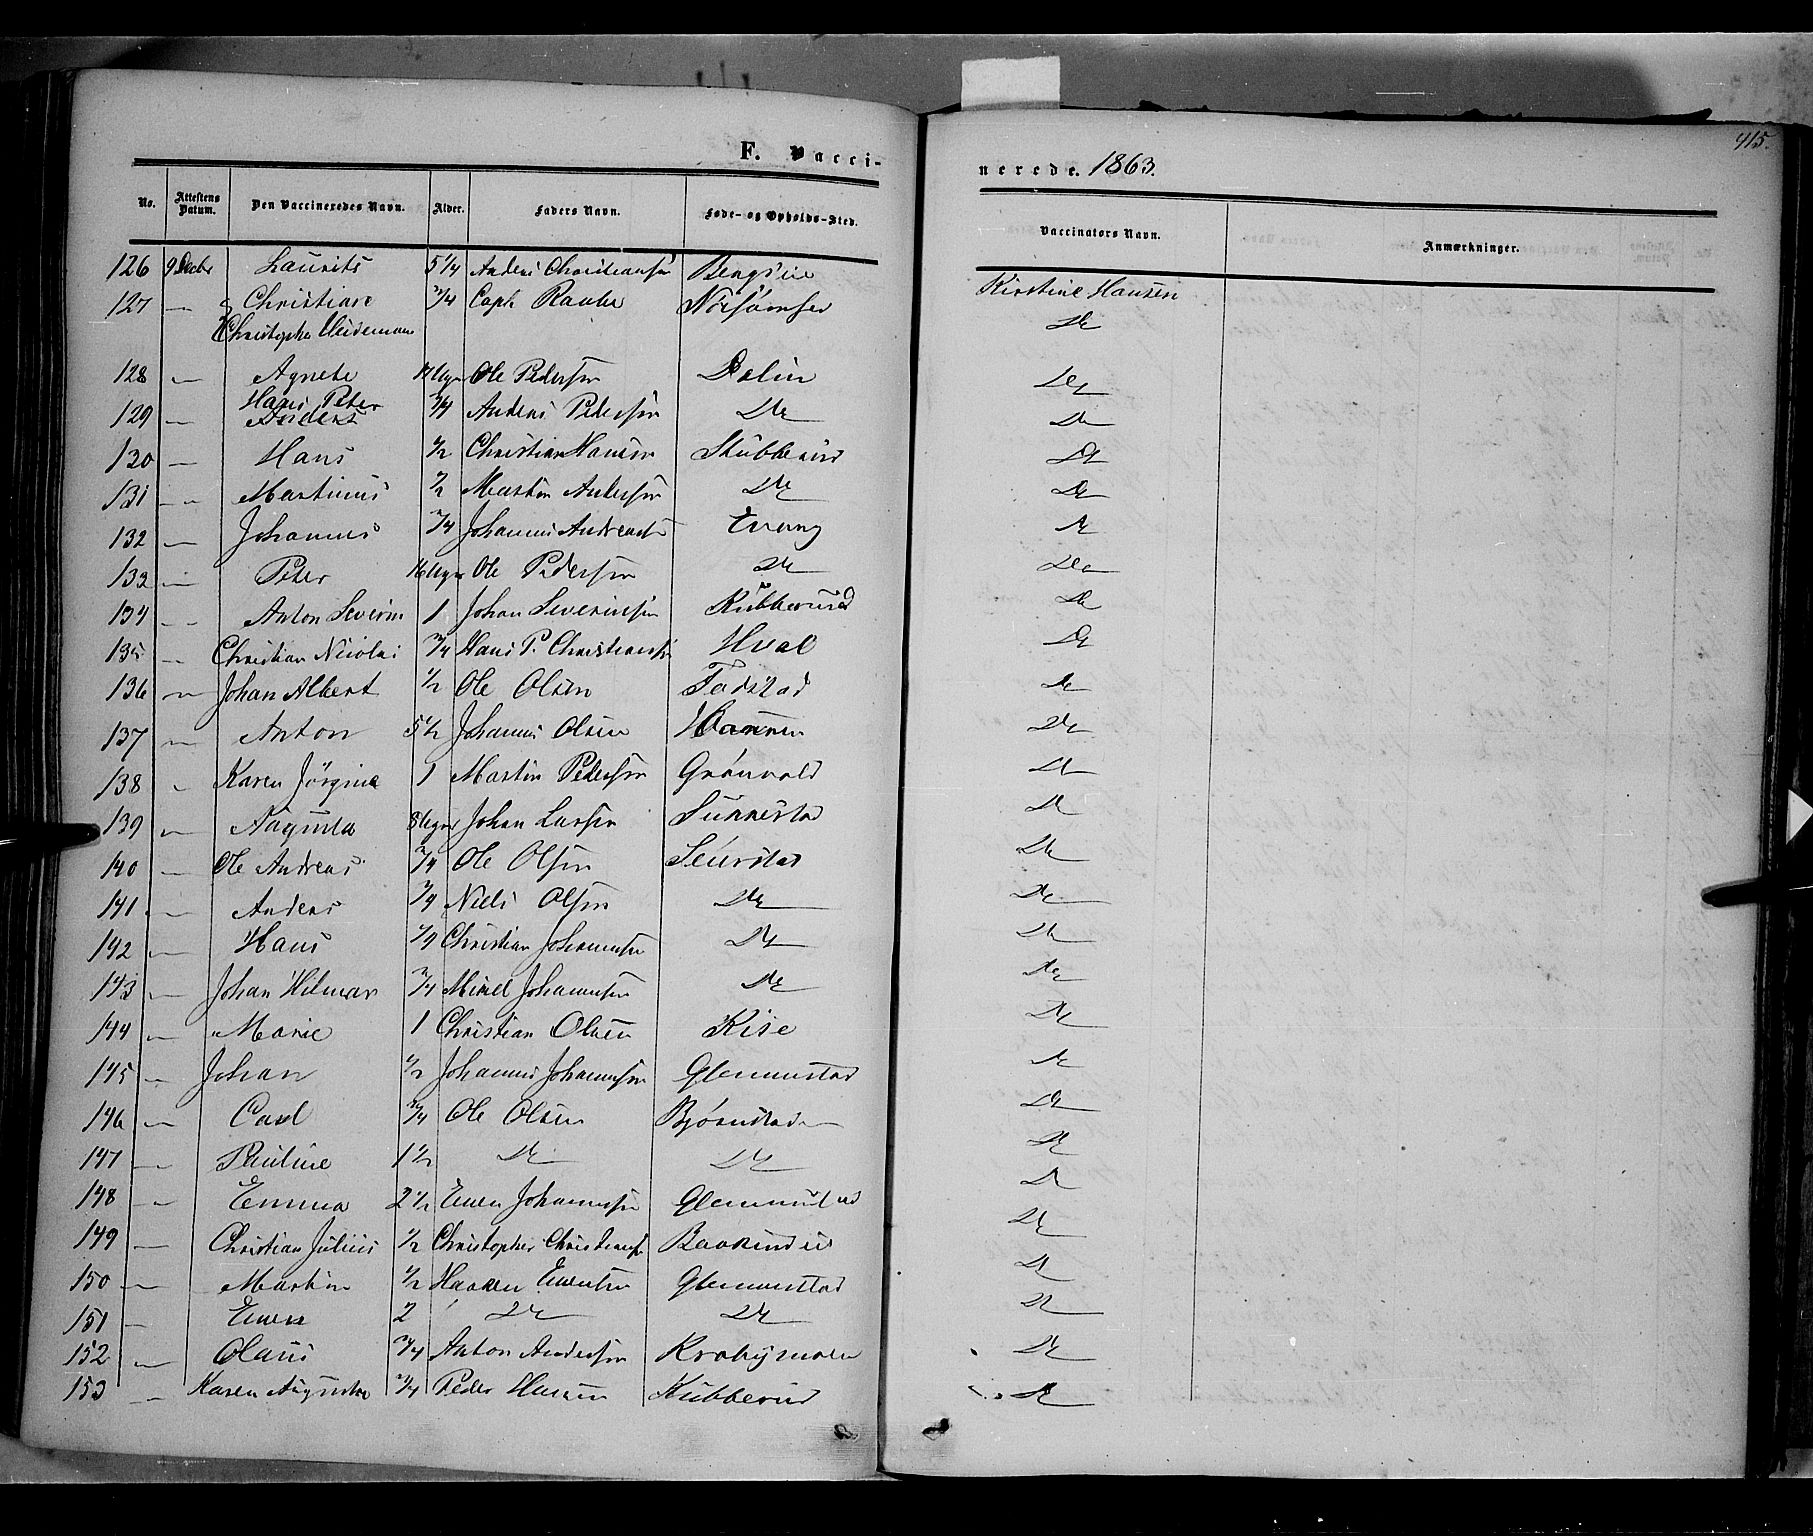 415.
F. Vacci-
nerede. 1863.
No. Attestens Datum. Den Vaccineredes Navn. Alder. Faders Navn. Føde- og Opholds-Sted. Vaccinators Navn. Anmærkninger.
126 9 Decbr Laurits 5 1/4 Anders Christiansen Kirstine Hansen
127 — Christiane 3/4 Capt. De
Christopher
128 — Agnete Ugr Ole Pedersen De
129 — Hans Peter 3/4 Anders Pedersen De De
Anders
130 — Hans 1/2 Christian Hansen Stubberud De
131 — Martinus 1/2 Martin Andersen De De
132 — Johannes 3/4 Johannes Andreass Evang De
133 — Peter 16 Ugr Ole Pedersen De De
134 — Anton Severin 1 Johan Severinsen Kubberud De
135 — Christian Nicolai 3/4 Hans P. Christiansen Hval De
136 — Johan Albert 1/2 Ole Olsen Fodstad De
137 — Anton 5 1/2 Johannes Olsen De
138 — Karen Jørgine 1 Martin Pedersen Grønvold De
139 — Augusta 8 Ugr Johan Larsen De
140 — Ole Andreas 3/4 Ole Olsen De
141 — Anders 3/4 Niels Olsen De De
142 — Hans Christian Johannesen De De
143 — Johan Hilmar 3/4 Mikel Johannesen De De
144 — Marie 1 Christian Olsen Kise De
145 — Johan 1/2 Johannes Johannesen Glemmestad De
146 — Carl 3/4 Ole Olsen Bjørnstad De
147 — Pauline 1 1/2 De De De
148 — Emma 2 1/2 Even Johannesen Glemmestad De
149 — Christian Julius 1/2 Christopher Christians De
150 — Martin 1/2 Haaken Evensen Glemmestad De
151 — Even 2 De De De
152 — Olaus 3/4 Anton Andersen De
153 — Karen Augusta 3/4 Peder Hansen Kubberud De